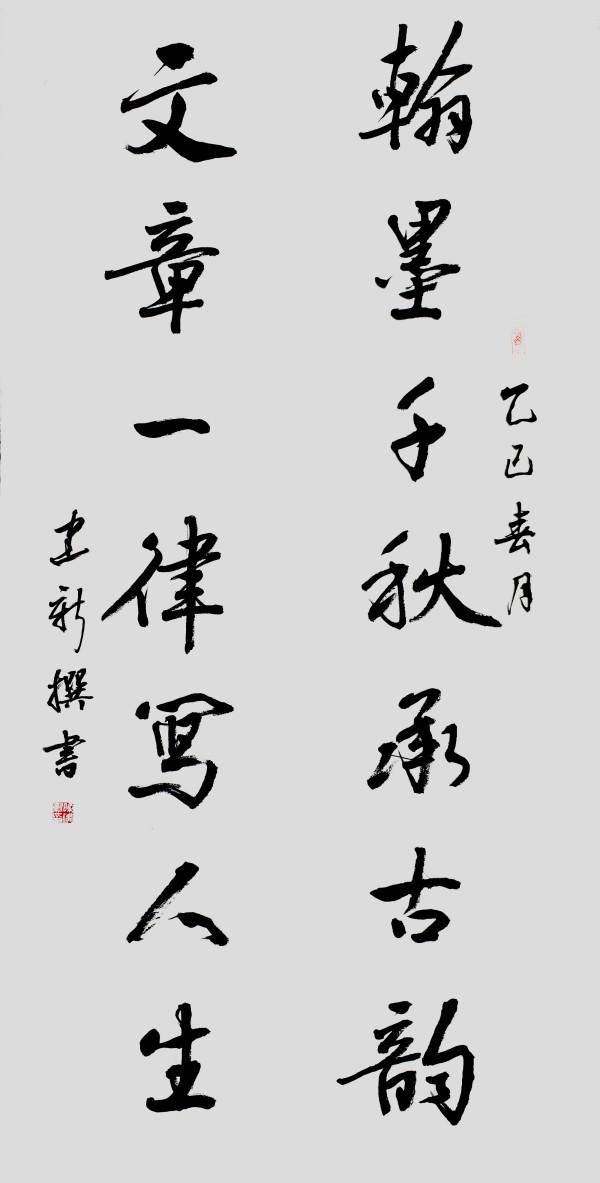 乙巳春月
翰墨千秋承古韵
文章一律寫人生
建新撰書